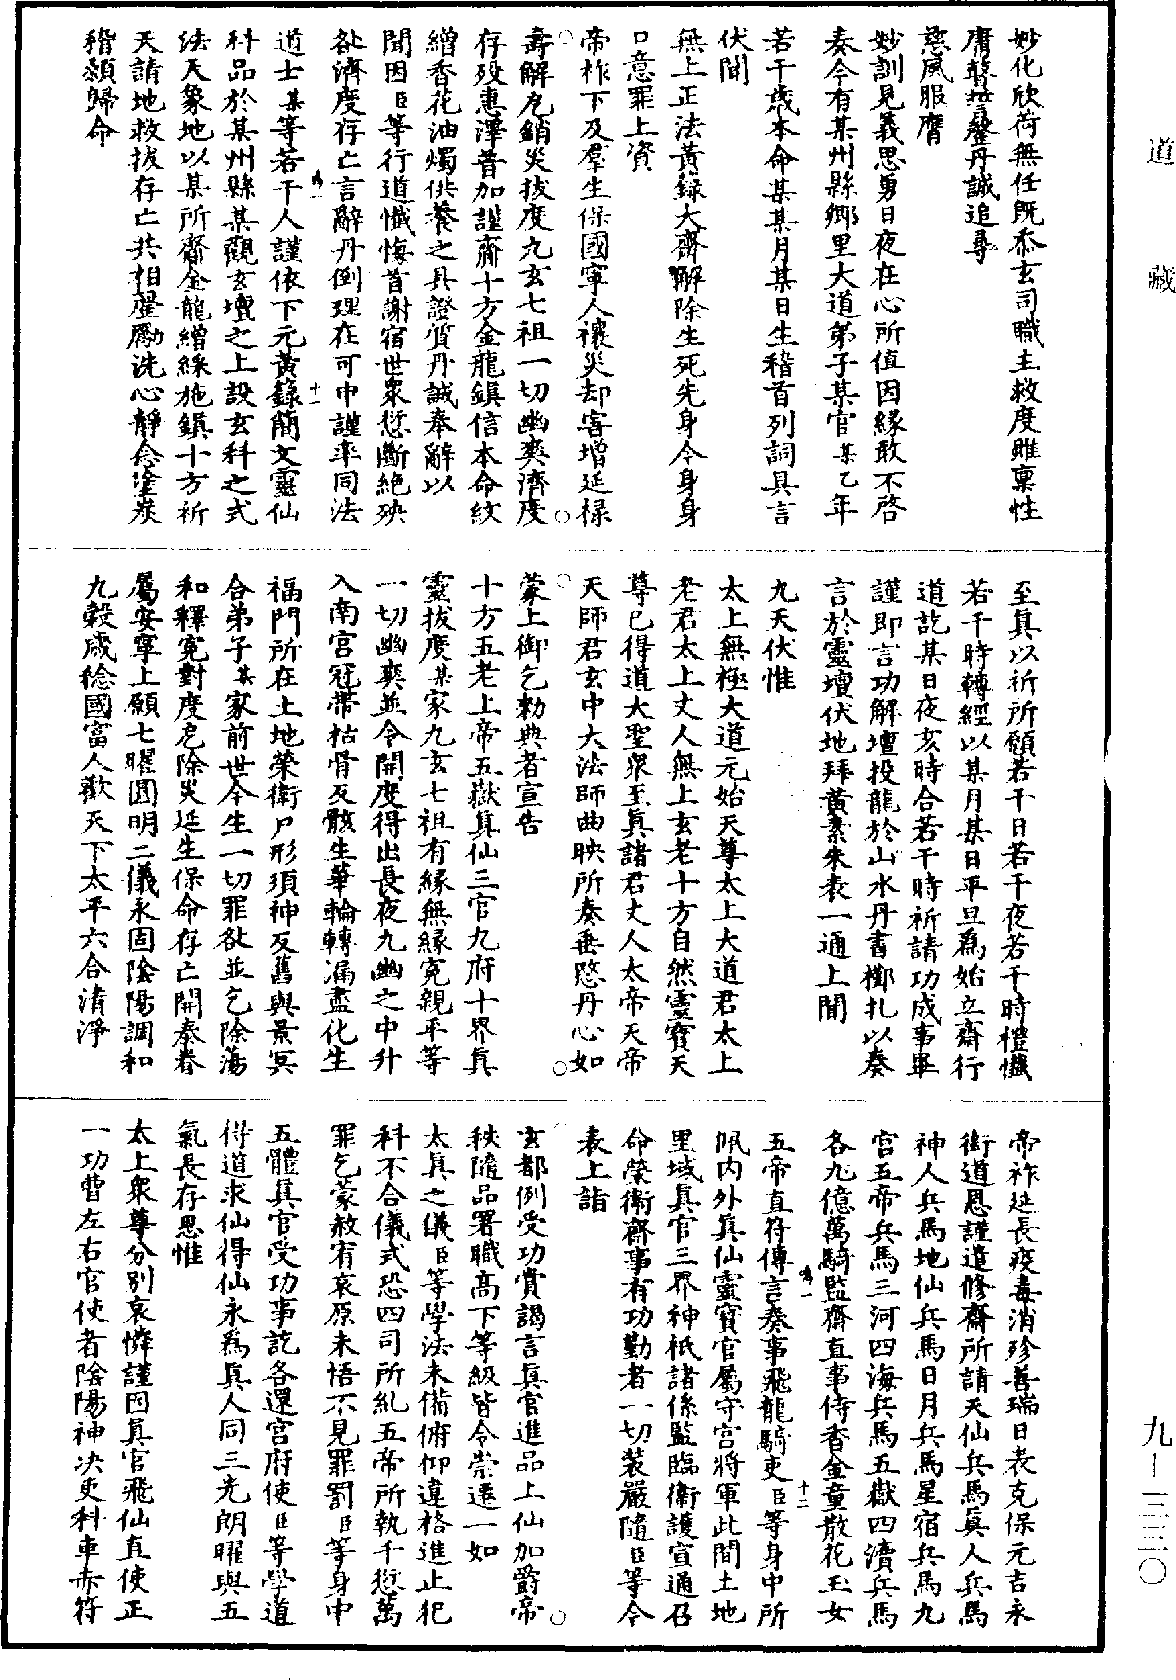 道藏
妙化欣荷無任既忝玄司職主救度雖稟性
庸瞽謹罄丹誠追尋
慈風服膺
妙訓見義思勇日夜在心所值因緣敢不啓
奏今有某州縣鄉里大道弟子某官某乙年
若干歲本命某某月某日生稽首列詞具言
伏聞
無上正法黃籙大齋解除生死先身今身身
口意罪上資
帝祚下及羣生保國寧人禳災却害增延祿
壽解危銷災拔度九玄七祖一切幽爽濟度
存歿惠澤普加謹齋十方金龍鎮信本命紋
繒香花油燭供養之具證質丹誠奉辭以
聞因臣等行道懺悔首謝宿世衆愆斷絕殃
咎濟度存亡言辭丹倒理在可申謹率同法
道士某等若干人謹依下元黃籙簡文靈仙
科品於某州縣某觀玄壇之上設玄科之式
法天象地以某所齎金龍繒綵施鎮十方祈
天請地救拔存亡共相璧勵洗心靜念塗炭
稽顙歸命
至真以祈所願若干日若干夜若干時禮懺
若干時轉經以某月某日平旦爲始立齋行
道訖某日夜亥時合若干時祈請功成事畢
謹即言功解壇投龍於山水丹書槨札以奏
言於靈壇伏地拜黃素朱表一通上聞
九天伏惟
太上無極大道元始天尊太上大道君太上
老君太上丈人無上玄老十方自然靈寶天
尊已得道大聖衆至真諸君丈人太帝天帝
天師君玄中大法師曲映所奏垂愍丹心如
蒙上御乞勅典者宣告
十方五老上帝五嶽真仙三官九府十界真
靈拔度某家九玄七祖有緣無緣寃親平等
一切幽爽並令開度得出長夜九幽之中升
入南宮冠帶枯骨反骸生華輪轉漏盡化生
福門所在土地榮衛尸形須神反舊與景冥
合弟子某家前世今生一切罪咎並乞除蕩
和釋寃對度危除災延生保命存亡開泰眷
屬安寧上願七曜圓明二儀永固陰陽調和
九穀咸稔國富人歡天下太平六合清淨
帝祚延長疫毒消殄善瑞日表克保元吉永
銜道恩謹遵修齋所請天仙兵馬真人兵馬
神人兵馬地仙兵馬日月兵馬星宿兵馬九
宮五帝兵馬三河四海兵馬五嶽四瀆兵馬
各九億萬騎監齋直事侍香金童散花玉女
五帝直符傳言奏事飛龍騎吏臣等身中所
佩內外真仙靈寶官屬守宮將軍此間土地
里域真官三界神祇諸係監臨衛護宣通召
命榮衛齋事有功勤者一切裝嚴隨臣等今
表上詣
玄都例受功賞謁言真官進品上仙加爵帝
秩隨品署職高下等級皆令崇遷一如
太真之儀臣等學法未備俯仰違格進止犯
科不合儀式恐四司所糺五帝所執千愆萬
罪乞蒙赦宥哀原未悟不見罪罰臣等身中
五體真官受功事訖各還宮府使臣等學道
得道求仙得仙永爲真人同三光朗曜與五
氣長存思惟
太上衆尊分別哀憐謹因真官飛仙直使正
一功曹左右官使者陰陽神决吏科車赤符
九—二三〇